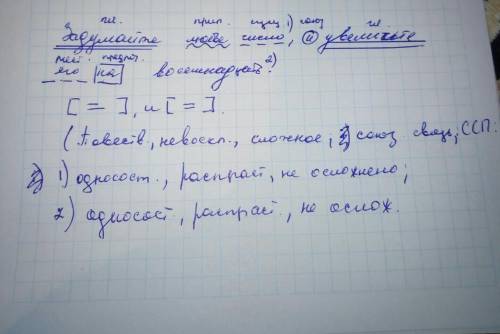 гл. прил. сущ. 1) союз гл.
Задумайте любое число, и увеличьте
мест. предлог. 2)
его на восемнадцать.
[ = ], и [ = ].
(Повеств., невоскл., сложное, союз связь, ССП.
1) односост., распраст., не осложнено;
2) односост., распраст., не ослож.